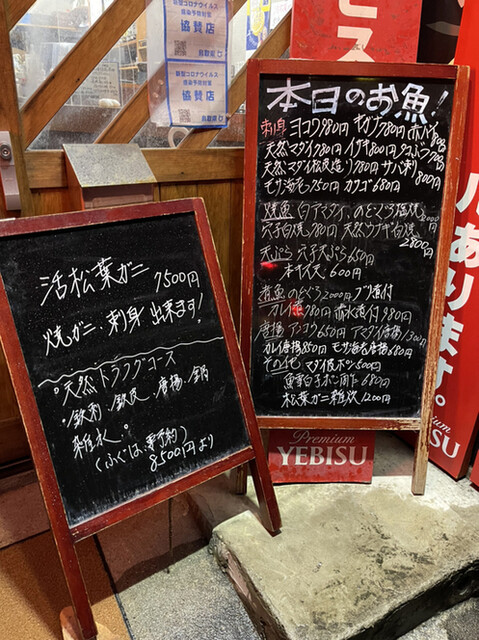 新型コロナウイルス
感染予防対策
協賛店
鳥取県
新型コロナウイルス
感染予防対策
協賛店
鳥取県
本日のお魚!
刺身 ヨコワ980円
天然マダイ780円 イサキ800円 タコぶつ700
天然マダイ松皮造り780円 サバ刺800円
モサ海老750円 カワハギ650円
焼魚 白アマダイ、のどぐろ塩焼2000円
穴子白焼980円 天然ウナギ白焼2800円
天ぷら 穴子天ぷら650円
キス天 600円
煮魚 のどぐろ2000円 ブリ煮付
カレイ煮980円 赤水煮付980円
唐揚 アンコウ650円 アマダイ唐揚1300円
カレイ唐揚850円 モサ海老唐揚680円
その他 マダイ皮ポン500円
白子ポン酢 680円
松葉ガニ雑炊1200円
活松葉ガニ 7500円
焼ガニ、刺身 出来ます!
天然トラフグコース
鉄刺、鉄皮、唐揚、鍋
雑炊。
(ふぐは、要予約)
8500円より
Premium
YEBISU
ビス
あります。
Premium
YEBISU